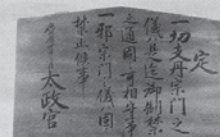 定
一切支丹宗門之
儀ハ是迄御制禁
之通固可相守事
一邪宗門之儀ハ固
禁止候事
太政官